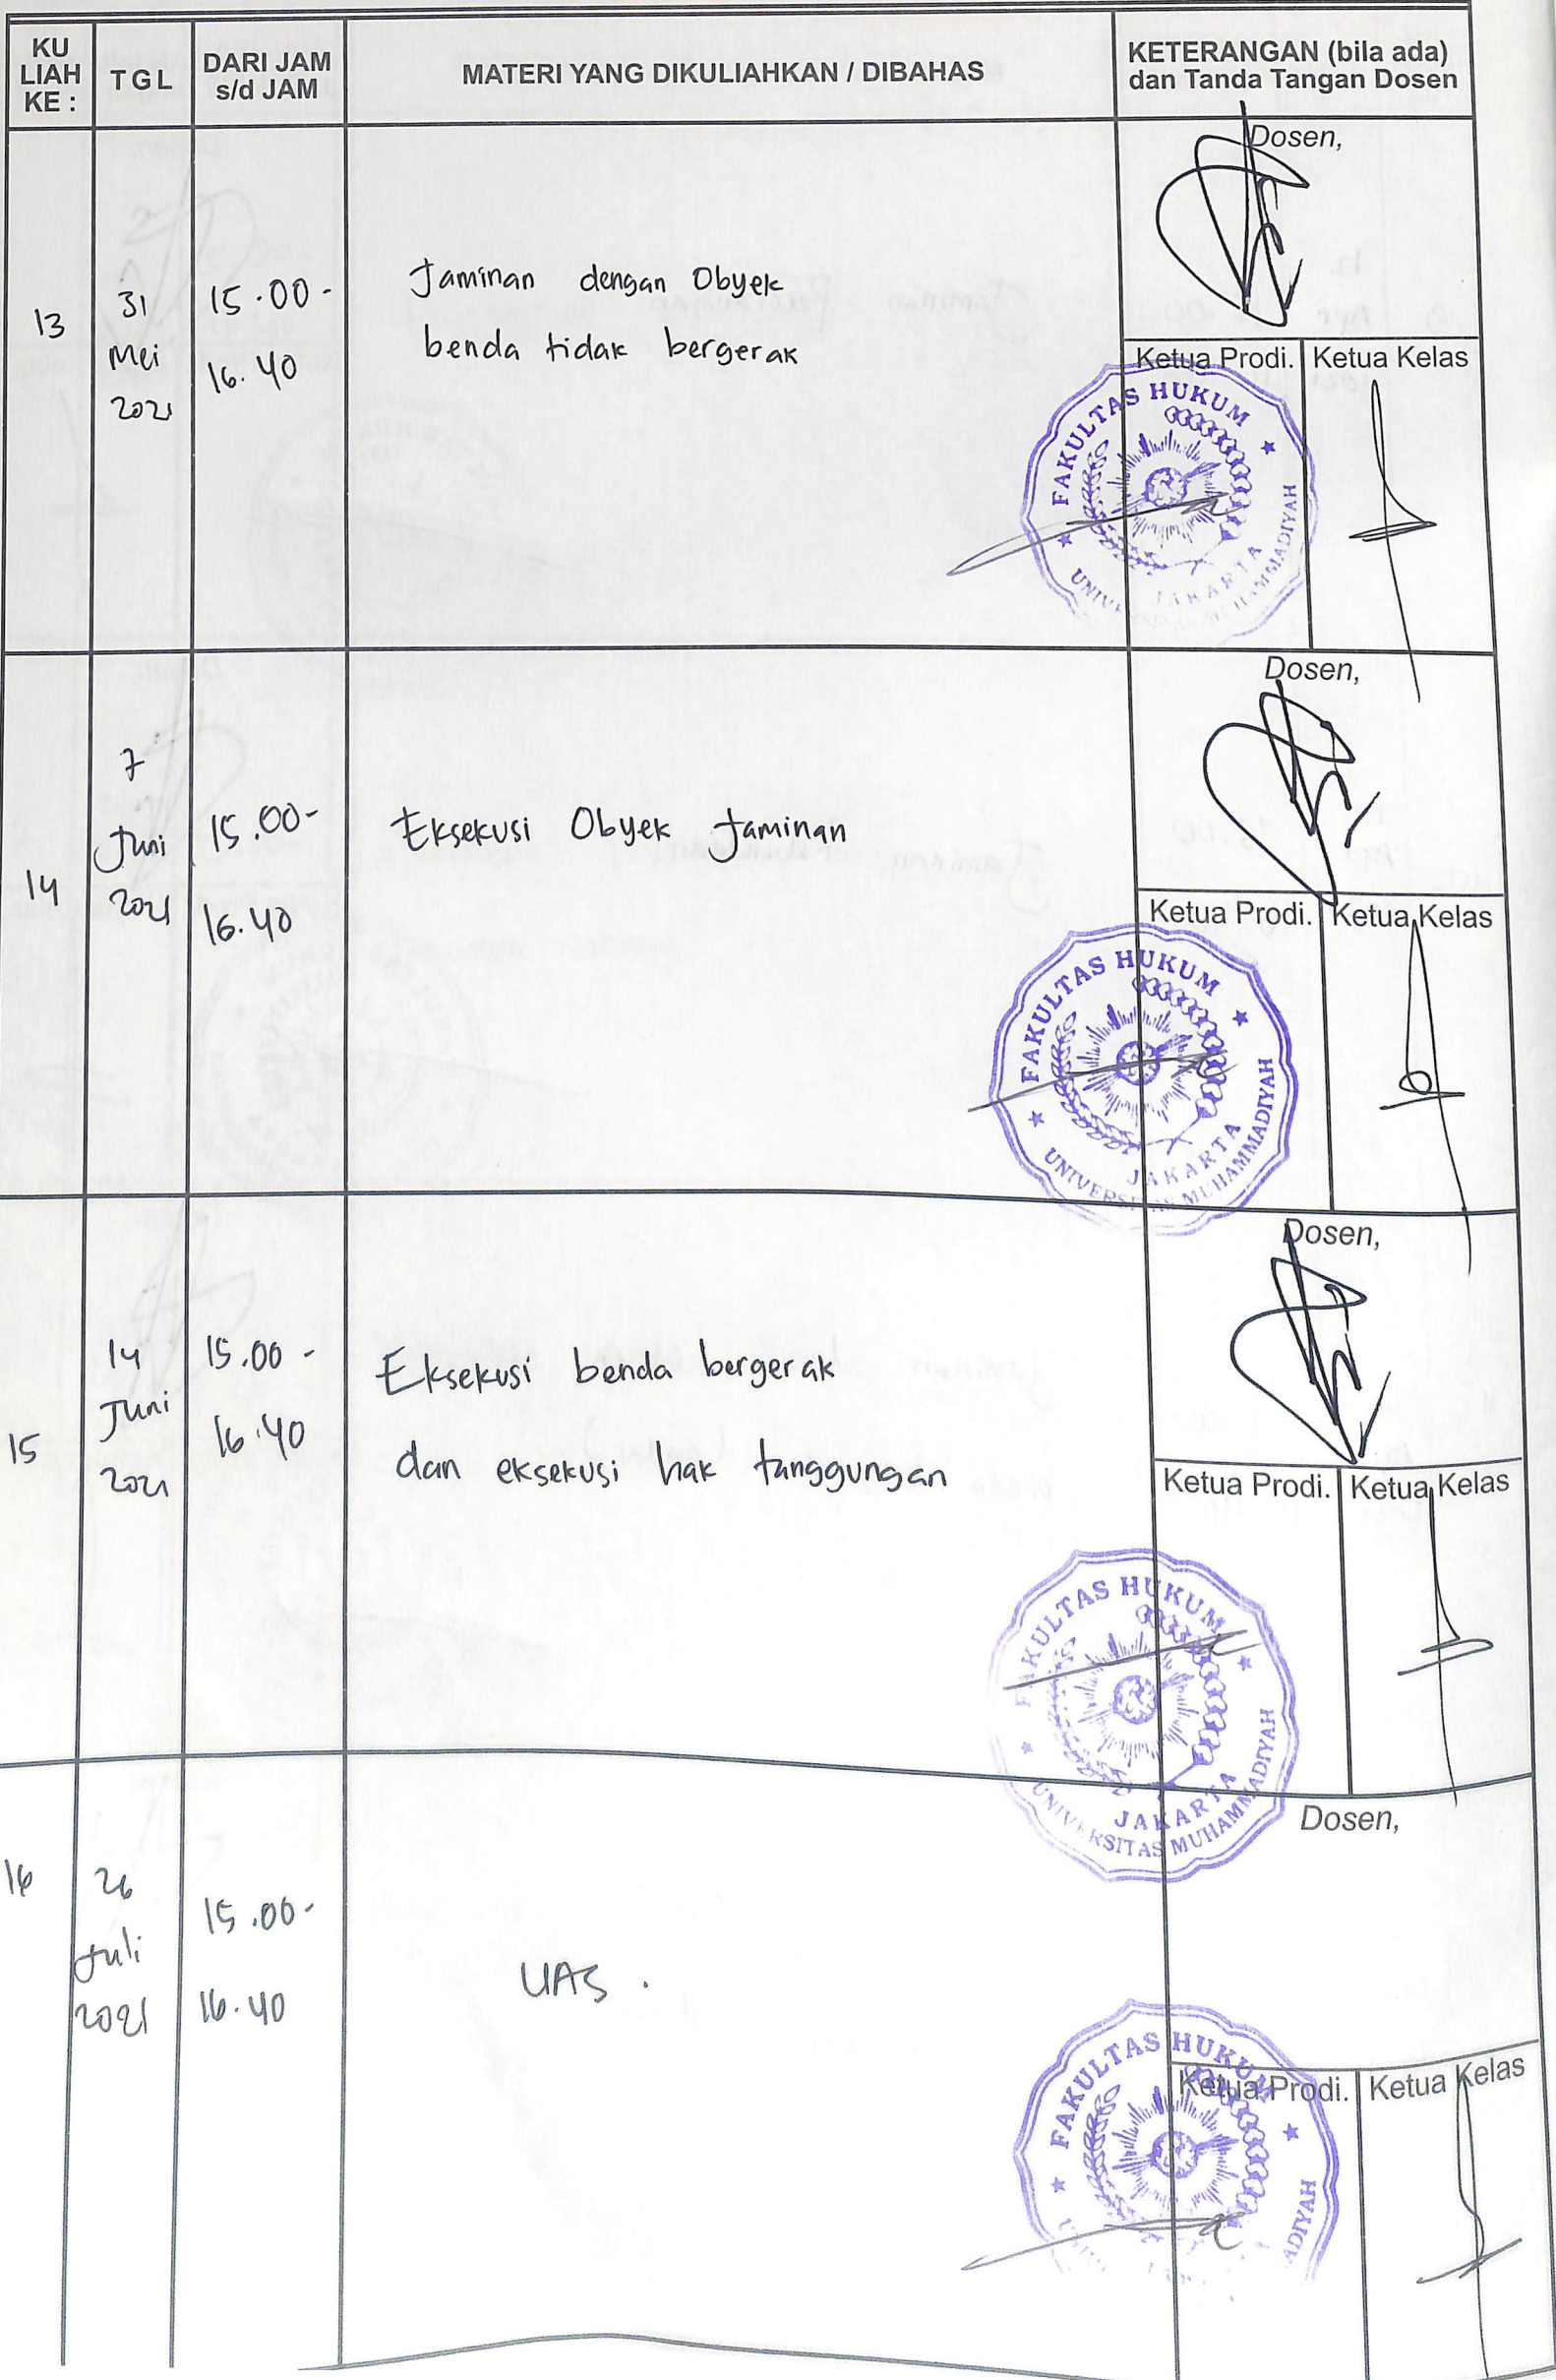 KU
LIAH
KE :
TGL
DARI JAM
s/d JAM
MATERI YANG DIKULIAHKAN / DIBAHAS
KETERANGAN (bila ada)
dan Tanda Tangan Dosen
13
31
Mei
2021
15.00-
16.40
Jaminan dengan Obyek
benda tidak bergerak
Dosen,
Ketua Prodi.
Ketua Kelas
FAKULTAS HUKUM
JAKARTA
14
7
Juni
2021
15.00-
16.40
Eksekusi Obyek Jaminan
Dosen,
Ketua Prodi.
Ketua Kelas
FAKULTAS HUKUM
JAKARTA
UNIVERSITAS MUHAMMADIYAH
15
14
Juni
2021
15.00-
16.40
Eksekusi benda bergerak
dan eksekusi hak tanggungan
Dosen,
Ketua Prodi.
Ketua Kelas
FAKULTAS HUKUM
JAKARTA
UNIVERSITAS MUHAMMADIYAH
16
26
Juli
2021
15.00-
16.40
UAS.
Dosen,
Ketua Prodi.
Ketua Kelas
FAKULTAS HUKUM